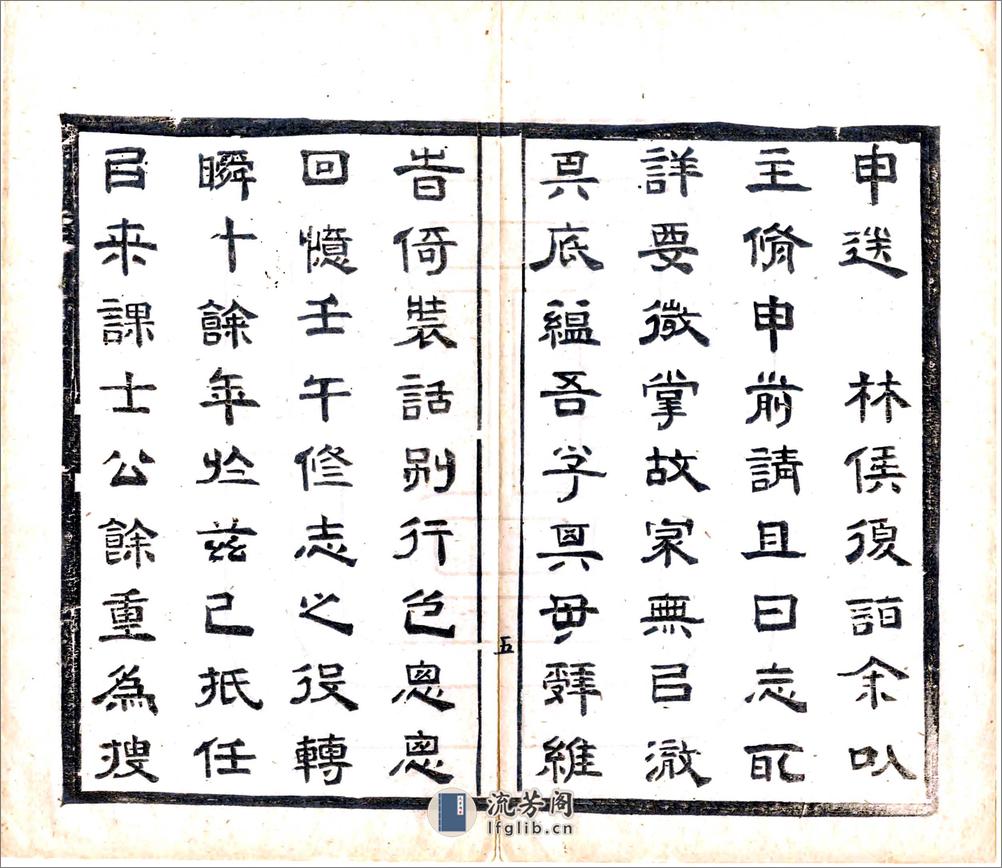 申送 林侯復詣余㕥
主脩申前請且曰志所
詳要徵掌故家無㠯澈
其底縕吾子其毋辭維
五
旹倚裝話別行色悤悤
回憶壬午修志之役轉
瞬十餘年於茲已抵任
㠯来課士公餘重為搜
流芳阁
lfglib.cn